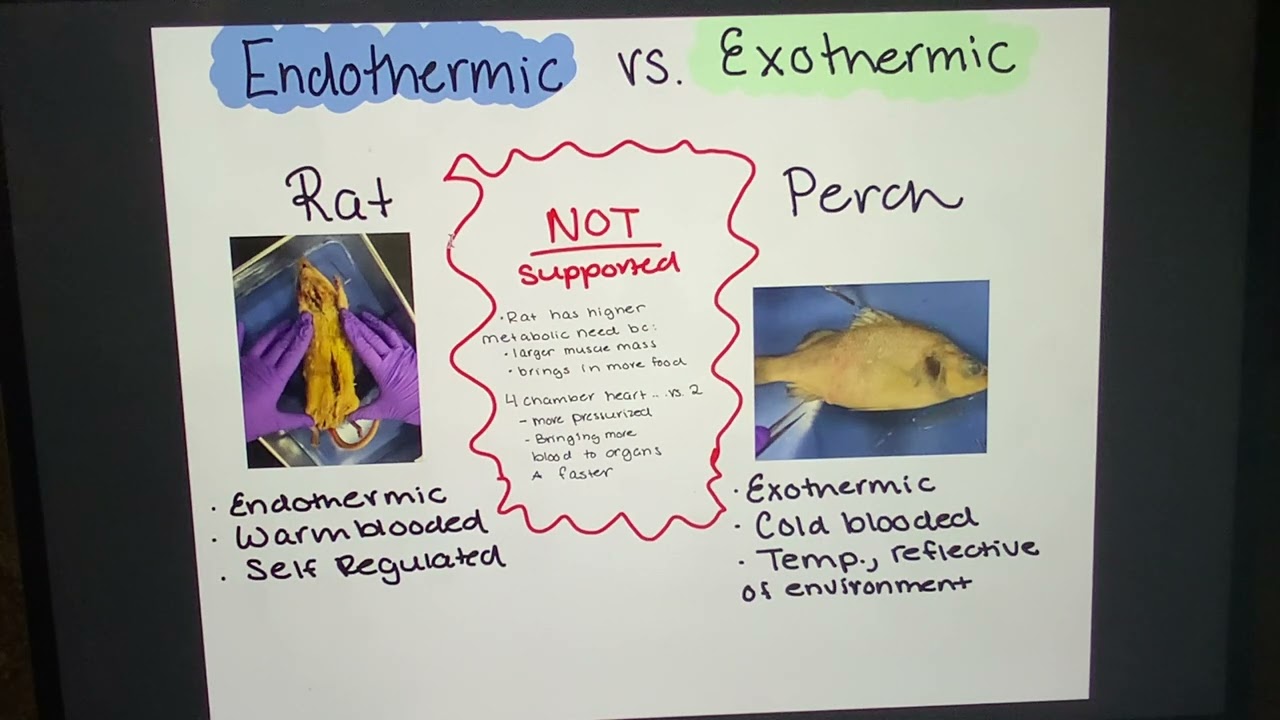 Endothermic vs. Exothermic
Rat
Perch
NOT
supported
• Rat has higher
metabolic need bc:
• larger muscle mass
• brings in more food
4 chamber heart .. .vs. 2
- more pressurized
- Bringing more
blood to organs
A faster
• Endothermic
• Warm blooded
• Self Regulated
• Exothermic
• Cold blooded
• Temp., reflective
of environment